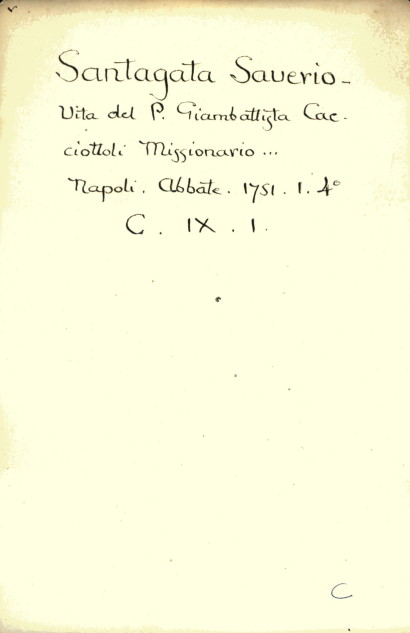 Santagata Saverio -
Vita del P. Giambattista Cac-
ciottoli Missionario ...
Napoli. Abbate. 1751. 1. 4º
C. IX. 1.
C